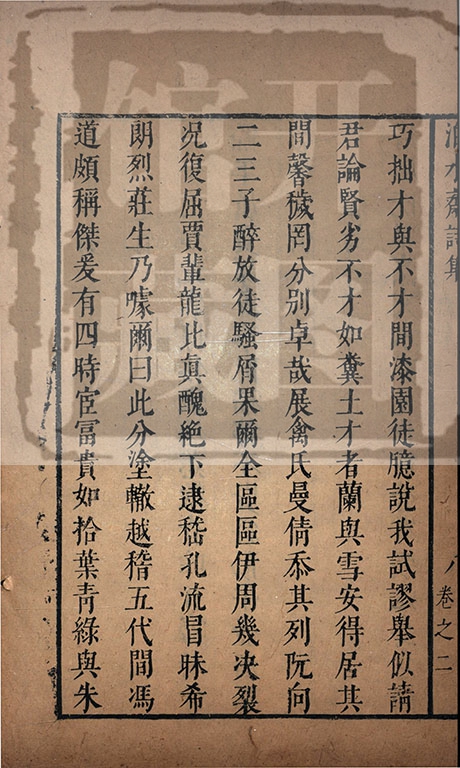 洎水齋詩集
卷之二
巧拙才與不才間漆園徒臆說我試謬舉似請
君論賢劣不才如糞土才者蘭與雪安得居其
間馨穢罔分別卓哉展禽氏曼倩忝其列阮向
二三子醉放徒騷屑果爾全區區伊周幾决裂
况復屈賈輩龍比眞醜絶下逮嵇孔流冒昧希
朗烈莊生乃噱爾曰此分塗轍越稽五代間馮
道頗稱傑爰有四時宦富貴如拾葉靑綠與朱